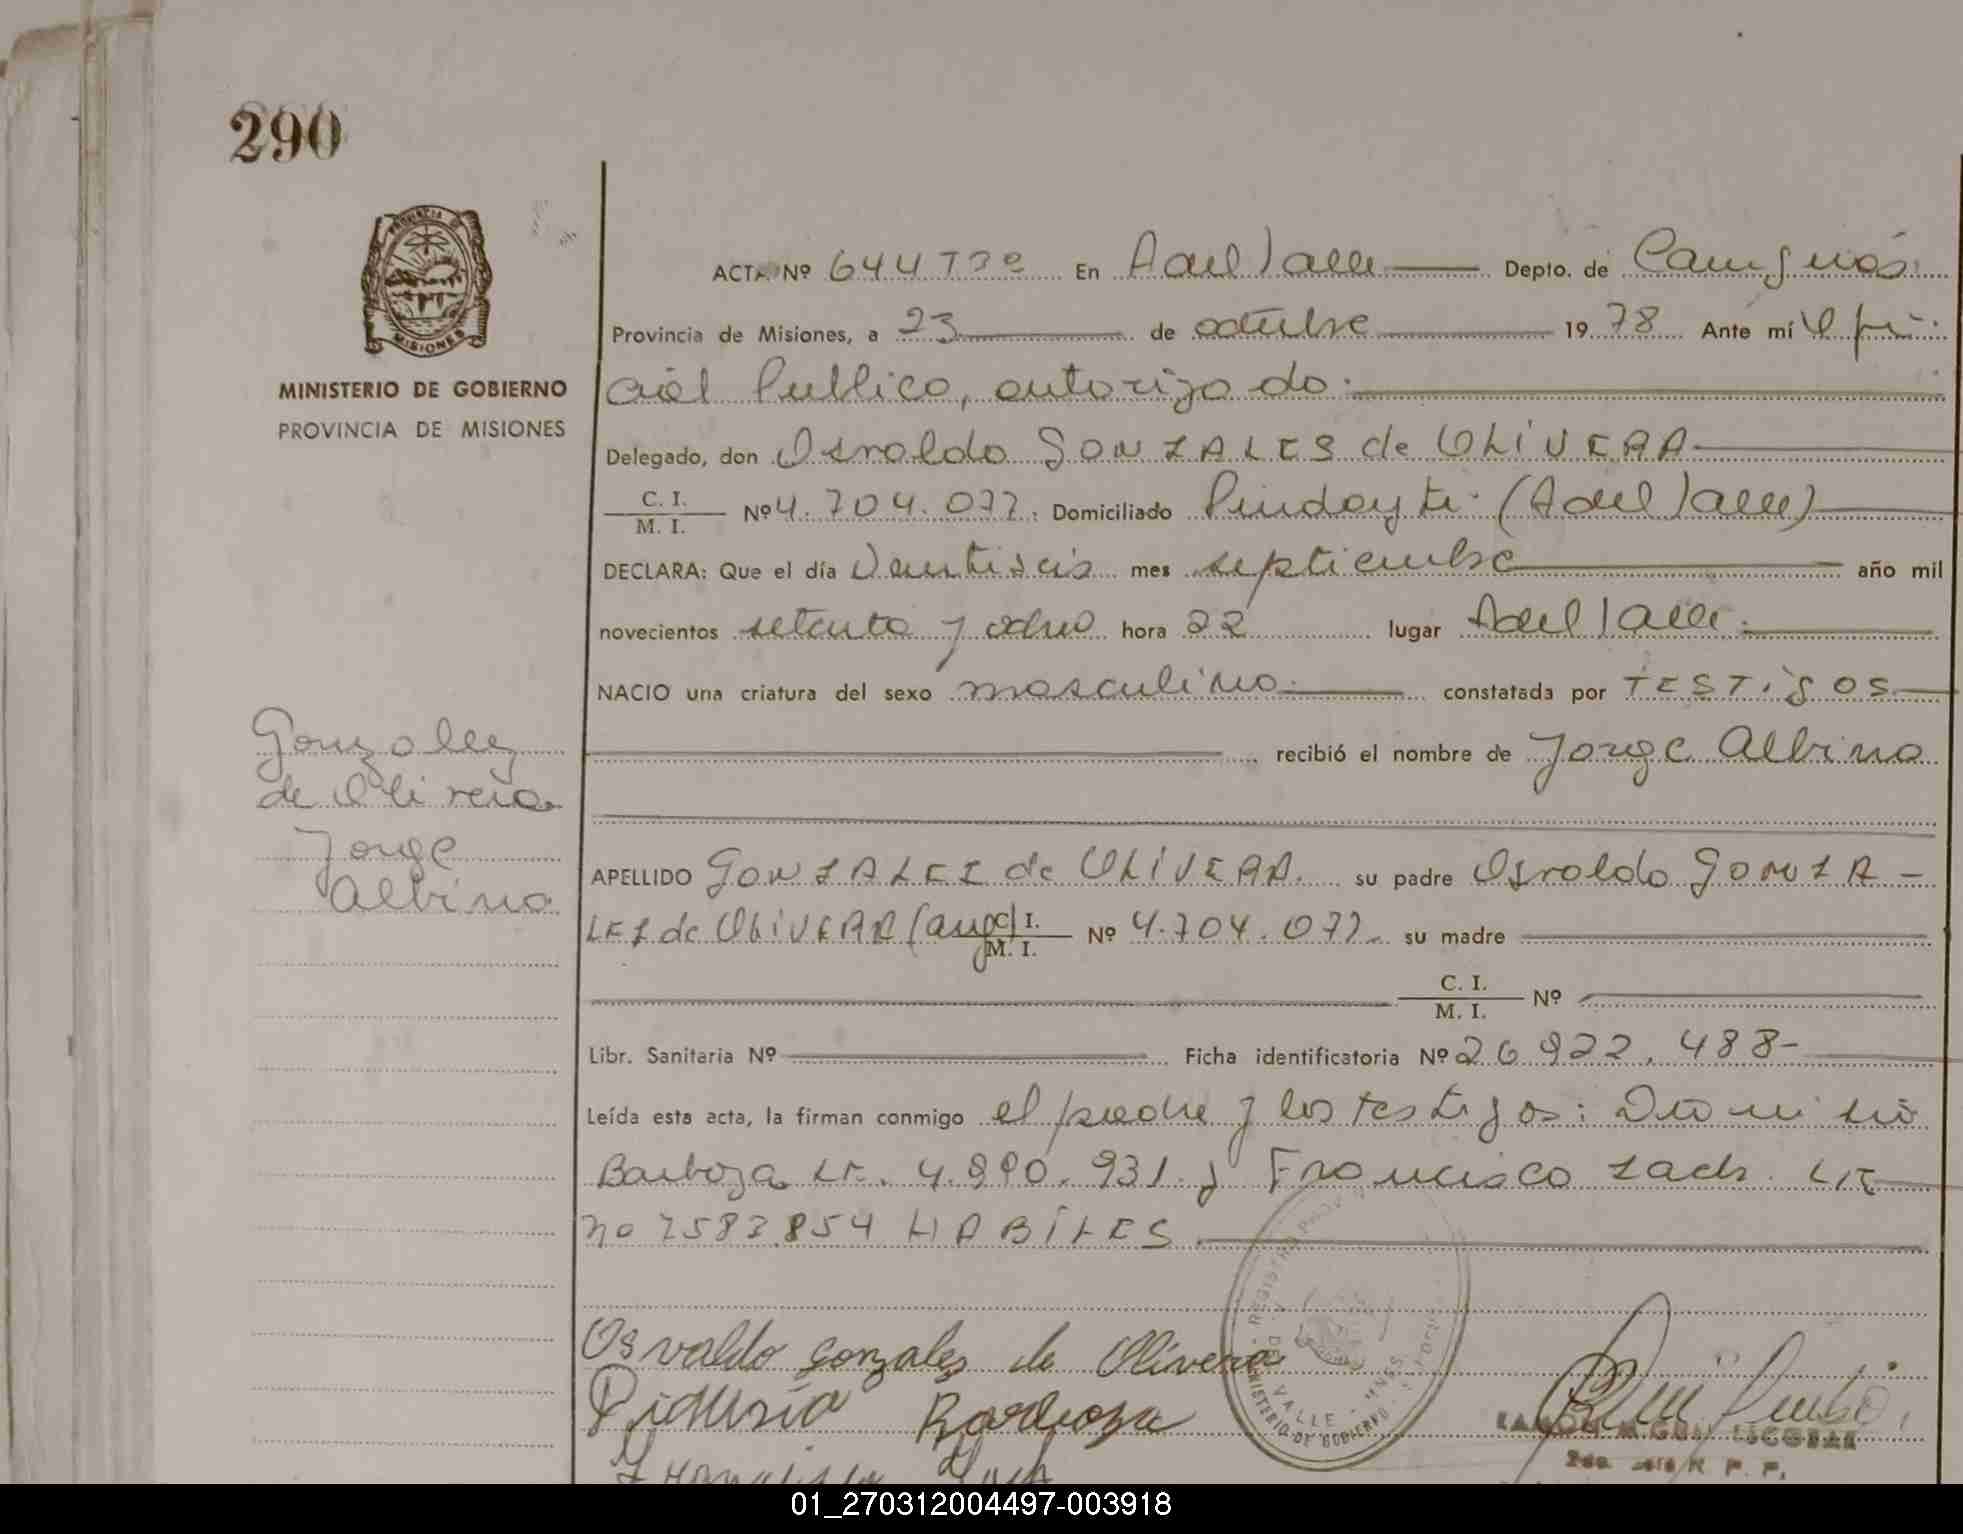 290
PROVINCIA DE
MISIONES
MINISTERIO DE GOBIERNO
PROVINCIA DE MISIONES
ACTA Nº 644 Tº 3º En A del Valle Depto. de Cainguás
Provincia de Misiones, a 23 de octubre 1978 Ante mí Ofi-
cial Publico, autorizado.
Delegado, don Osvaldo GONZALES de OLIVERA
C. I.
M. I. Nº 4.704.077. Domiciliado Pindayti (A del Valle)
DECLARA: Que el día Veintiseis mes septiembre año mil
novecientos setenta y ocho hora 22 lugar A del Valle.
NACIO una criatura del sexo masculino. constatada por TESTIGOS
recibió el nombre de Jorge Albino
Gonzalez
de Olivera
Jorge
Albino
APELLIDO GONZALEZ de OLIVERA. su padre Osvaldo GONZA-
LEZ de OLIVERA (arg) C. I.
M. I. Nº 4.704.077. su madre
C. I.
M. I. Nº
Libr. Sanitaria Nº Ficha identificatoria Nº 26.922.488-
Leída esta acta, la firman conmigo el padre y los testigos:
Barboza LE. 4.990.931. y Francisco Zach. LE
no 7583.854 HABILES.
Osvaldo gonzales de Olivera
Barboza
Francisco Zach
REGISTRO PROV
A. DEL VALLE - MNES.
MINISTERIO DE GOBIERNO
RAMON MIGUEL ESCOBAR
R. P. P.
01_270312004497-003918